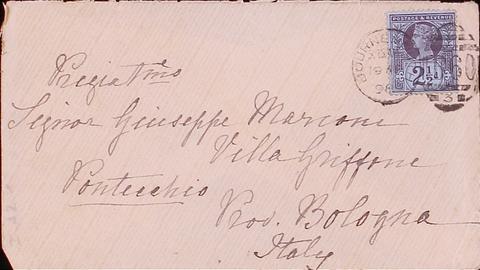 POSTAGE & REVENUE
2½
BOURNE
96
3
Pregiatmo
Signor Giuseppe Marconi
Villa Griffone
Pontecchio
Prov. Bologna
Italy